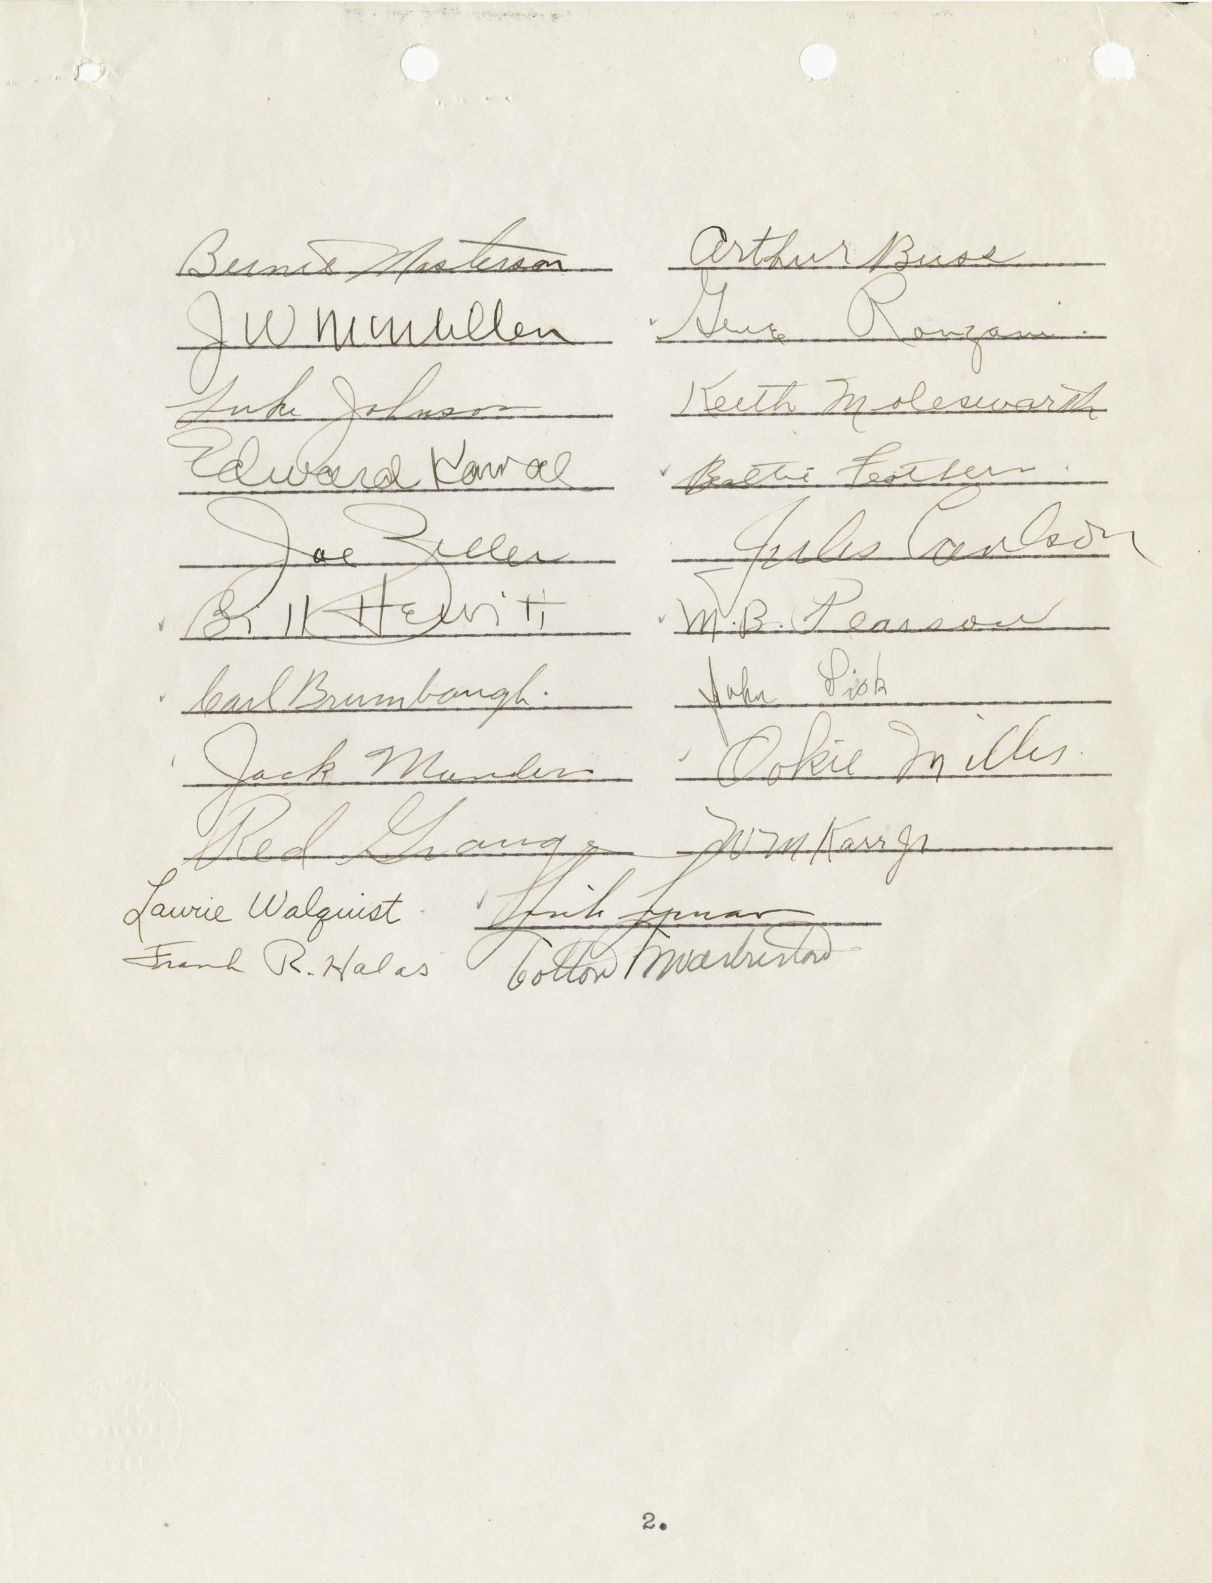 Bernie Masterson Arthur Buss
J W McMullen Gene Ronzani.
Luke Johnson Keith Molesworth
Edward Kawal Beattie Feathers
Joe Zeller Jules Carlson
Bill Hewitt M.B. Pearson
Carl Brumbaugh. John Sisk
Jack Manders Ookie Miller
Red Grange Wm Karr Jr
Laurie Walquist Link Lyman
Frank R. Halas Cotton Warburton
2.